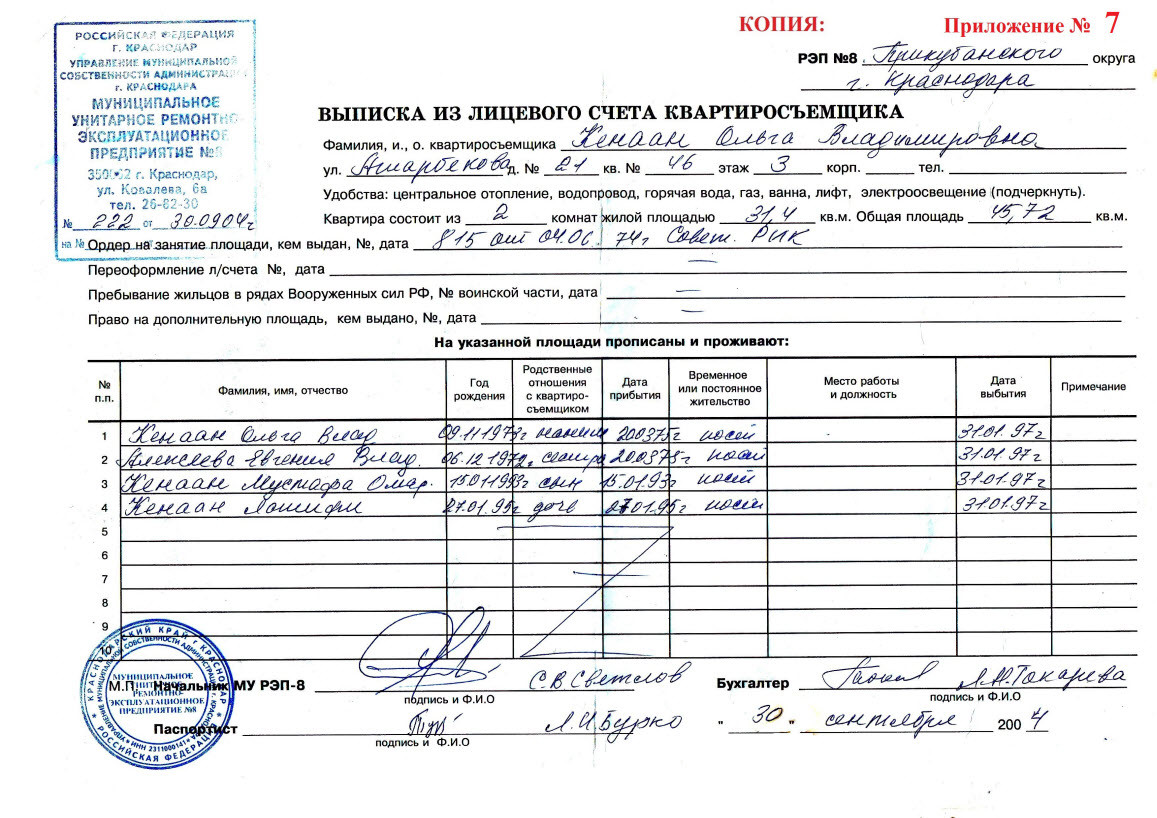 КОПИЯ: Приложение № 7
РОССИЙСКАЯ ФЕДЕРАЦИЯ
г. КРАСНОДАР
УПРАВЛЕНИЕ МУНИЦИПАЛЬНОЙ
СОБСТВЕННОСТИ АДМИНИСТРАЦИИ
г. КРАСНОДАРА
МУНИЦИПАЛЬНОЕ
УНИТАРНОЕ РЕМОНТНО-
ЭКСПЛУАТАЦИОННОЕ
ПРЕДПРИЯТИЕ №8
350062 г. Краснодар,
ул. Ковалева, 6а
тел. 26-82-30
№ 222 от 30.09.04г
на № от
РЭП №8 Прикубанского округа
г. Краснодара
ВЫПИСКА ИЗ ЛИЦЕВОГО СЧЕТА КВАРТИРОСЪЕМЩИКА
Фамилия, и., о. квартиросъемщика Кенаан Ольга Владимировна
ул. Атарбекова д. № 21 кв. № 46 этаж 3 корп. тел.
Удобства: центральное отопление, водопровод, горячая вода, газ, ванна, лифт, электроосвещение (подчеркнуть).
Квартира состоит из 2 комнат жилой площадью 31,4 кв.м. Общая площадь 45,72 кв.м.
Ордер на занятие площади, кем выдан, №, дата 815 от 04.06. 74г Совет. РИК
Переоформление л/счета №, дата —
Пребывание жильцов в рядах Вооруженных сил РФ, № воинской части, дата —
Право на дополнительную площадь, кем выдано, №, дата —
На указанной площади прописаны и проживают:
№ п.п. Фамилия, имя, отчество Год рождения Родственные отношения с квартиро-съемщиком Дата прибытия Временное или постоянное жительство Место работы и должность Дата выбытия Примечание
1 Кенаан Ольга Влад 09.11.1973г наним 200375г 31.01.97г
2 Алексеева Евгения Влад. 06.12.1972г. сестра 200375г 31.01.97г
3 Кенаан Мустафа Омар. 15011993г сын 15.01.93г 31.01.97г
4 Кенаан 27.01.95г дочь 27.01.95г 31.01.97г
5
6
7
8
9
10
М.П. Начальник МУ РЭП-8 С.В Светлов Бухгалтер Л.Н.Токарева
подпись и Ф.И.О подпись и Ф.И.О
Паспортист Л.И.Бурко " 30 " сентября 200 4
подпись и Ф.И.О
КРАСНОДАРСКИЙ КРАЙ г. КРАСНОДАР
РОССИЙСКАЯ ФЕДЕРАЦИЯ
ИНН 2311000141
МУНИЦИПАЛЬНОЕ
УНИТАРНОЕ
РЕМОНТНО-
ЭКСПЛУАТАЦИОННОЕ
ПРЕДПРИЯТИЕ №8